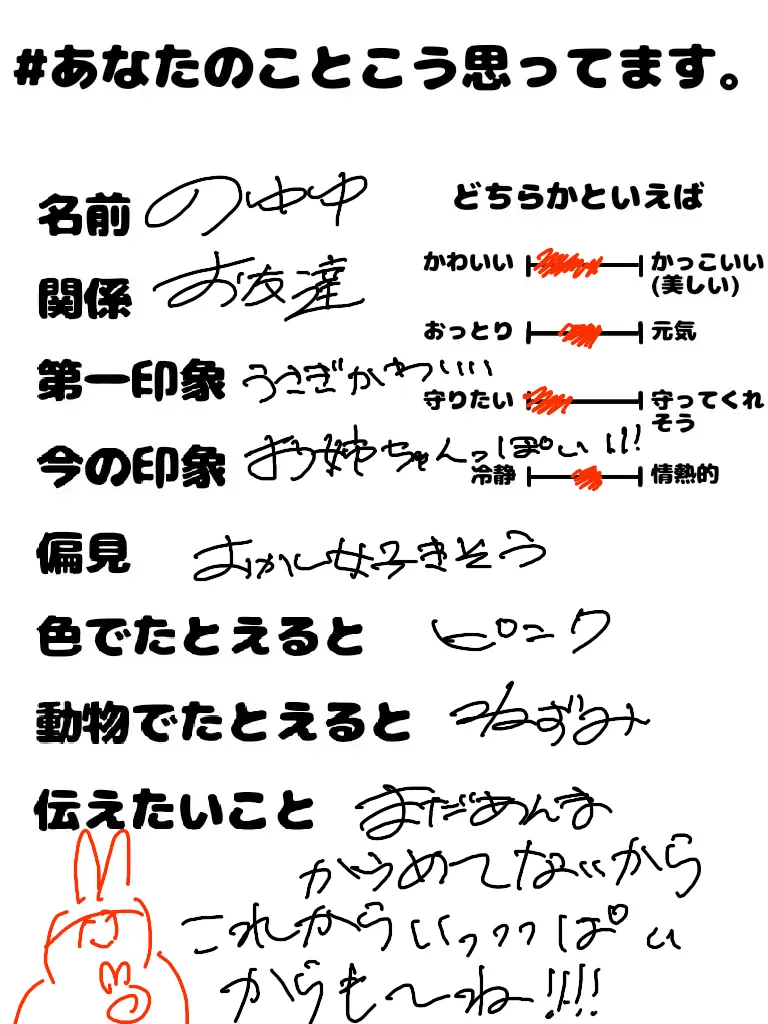 #あなたのことこう思ってます。
名前 のゆゆ
関係 お友達
第一印象 うさぎかわいいい
今の印象 お姉ちゃんっぽい!!!
偏見 おかし好きそう
色でたとえると ピンク
動物でたとえると ねずみ
伝えたいこと まだあんま
からめてないから
これからいっっっぱい
からも〜ね!!!!
どちらかといえば
かわいい かっこいい
(美しい)
おっとり 元気
守りたい 守ってくれ
そう
冷静 情熱的